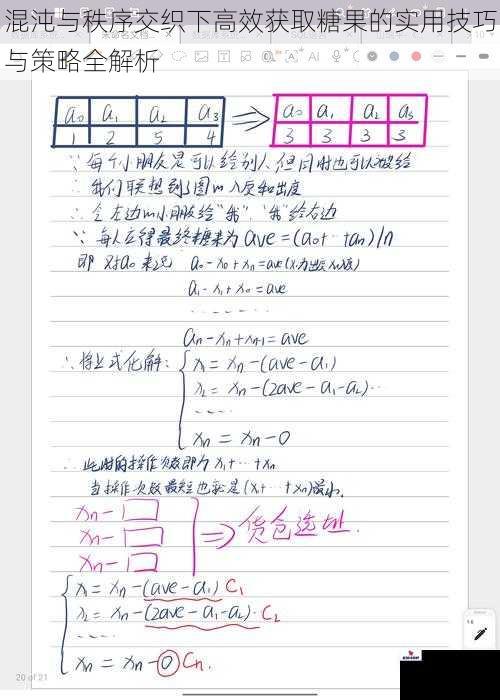 混沌与秩序交织下高效获取糖果的实用技巧
与策略全解析
a₀ a₁ a₂ a₃ ⇒ a₀ a₁ a₂ a₃
1 2 5 4 3 3 3 3
∵ 每个小朋友是可以给别人 但同时也可以被给
∴ 我们联想到图 入度和出度
∴ 令左边小朋友给"我"，"我"给右边
∵ 每人应得最终糖果为 ave = (a₀+…+aₙ)/n
即 对a₀来说 a₀-x₀+xₙ=ave
a₁-x₁+x₀=ave
aₙ-xₙ+xₙ₊₁=ave
∴ 将上式化解：
x₁ = xₙ-(ave-a₁)
x₂ = xₙ-(2ave-a₁-a₂)…
xₙ = xₙ-0
∴ 此时的操作次数即为 x₁+…+xₙ
当操作次数最短也就是(x₁+…+xₙ)最小.
xₙ-
xₙ- ⇒ 货仓选址.
xₙ-
x₁ = xₙ-(ave-a₁) C₁
x₂ = xₙ-(2ave-a₁-a₂). C₂
xₙ = xₙ-0 Cₙ.
20 of 21